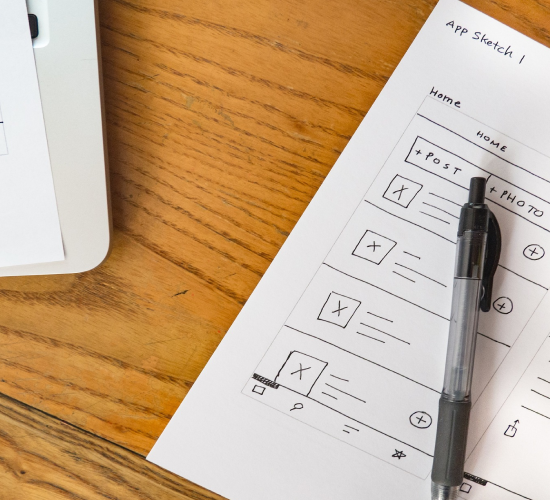 App Sketch 1
Home
HOME
+ POST
+ PHOTO